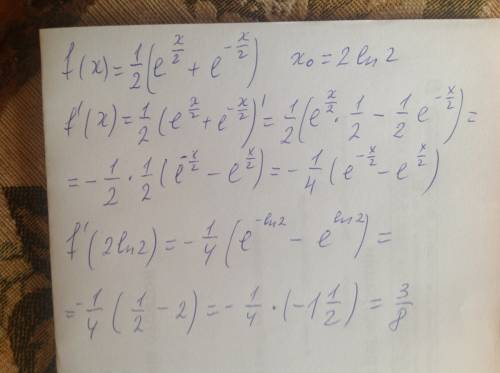 f(x) = 1/2 (e^(x/2) + e^(-x/2))   x₀ = 2 ln 2
f'(x) = 1/2 (e^(x/2) + e^(-x/2))' = 1/2 (e^(x/2) · 1/2 - 1/2 e^(-x/2)) =
= - 1/2 · 1/2 (e^(-x/2) - e^(x/2)) = - 1/4 (e^(-x/2) - e^(x/2))
f'(2ln2) = - 1/4 (e^(-ln2) - e^(ln2)) =
= - 1/4 (1/2 - 2) = - 1/4 · (-1 1/2) = 3/8